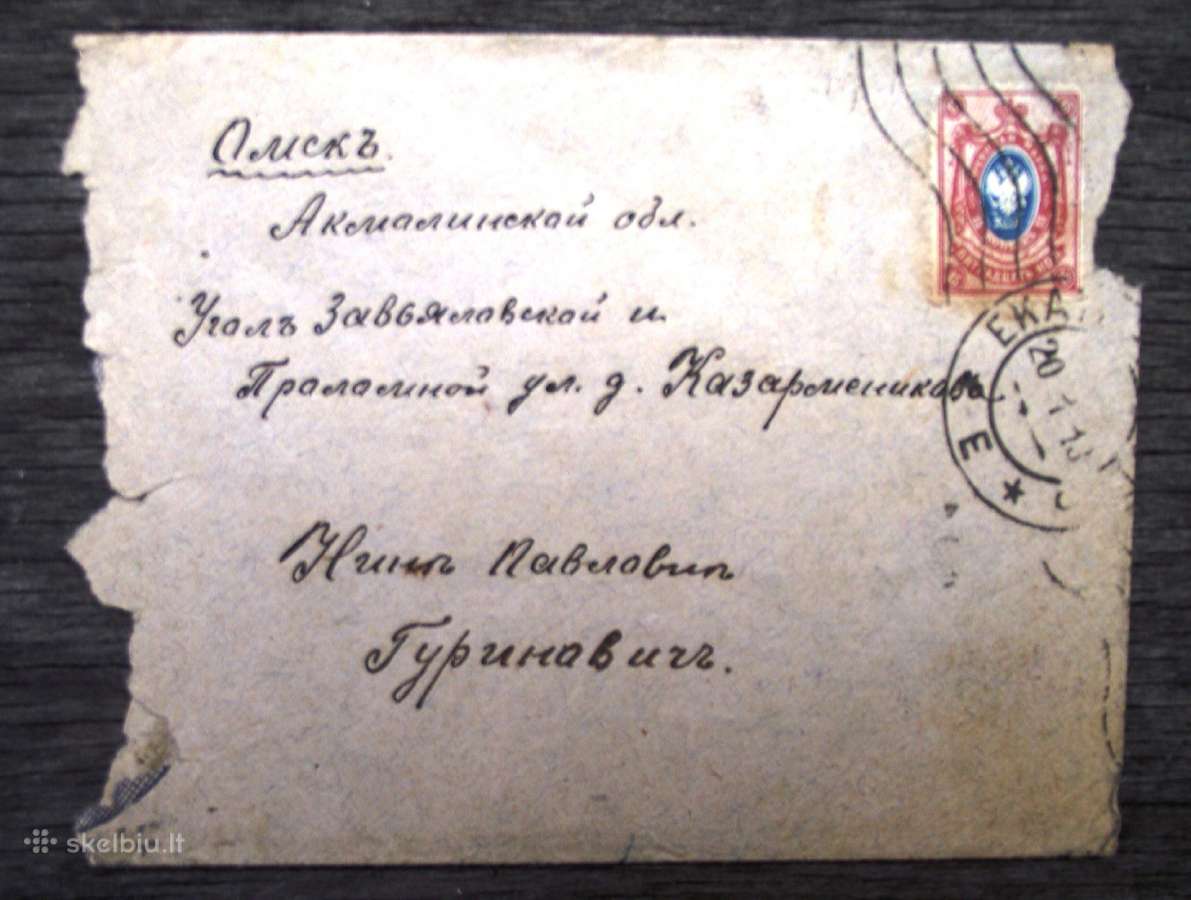 Омскъ.
Акмалинской обл.
Уголъ Завьяловской и
Проломной ул. д. Казарменикова.
ЕКА
20
Е
Нинѣ Павловнѣ
Гуриновичъ.
skelbiu.lt